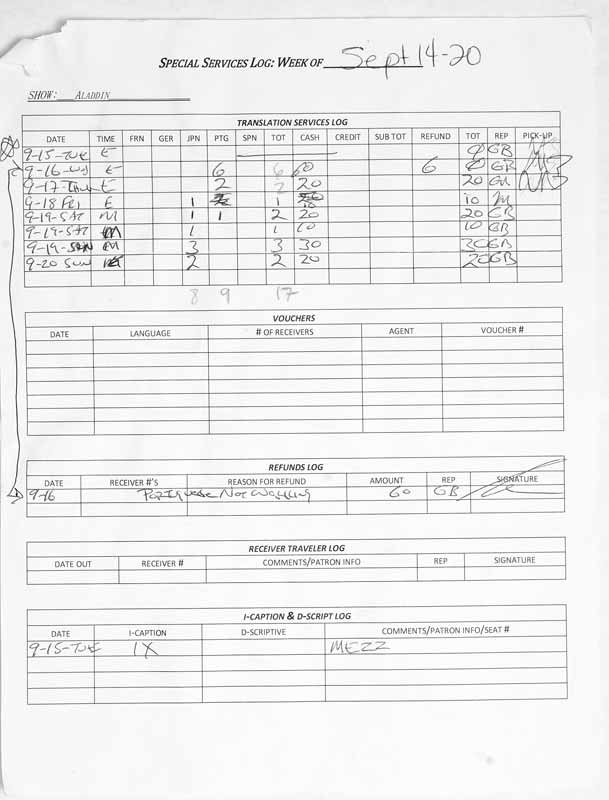 SPECIAL SERVICES LOG: WEEK OF Sept 14-20
SHOW: ALADDIN
TRANSLATION SERVICES LOG
DATE TIME FRN GER JPN PTG SPN TOT CASH CREDIT SUB TOT REFUND TOT REP PICK-UP
9-15-TUE E 0 GB
9-16-WED E 6 6 60 6 0 GB
9-17-THU E 2 2 20 20 GM
9-18 FRI E 1 1 10 10
9-19-SAT M 1 1 2 20 20 GB
9-19-SAT 1 1 10 10 GB
9-19-SUN M 3 3 30 30 GB
9-20 SUN 2 2 20 20 GB
8 9 17
VOUCHERS
DATE LANGUAGE # OF RECEIVERS AGENT VOUCHER #
REFUNDS LOG
DATE RECEIVER #'S REASON FOR REFUND AMOUNT REP SIGNATURE
9-16 Portguese Not Working 60 GB
RECEIVER TRAVELER LOG
DATE OUT RECEIVER # COMMENTS/PATRON INFO REP SIGNATURE
I-CAPTION & D-SCRIPT LOG
DATE I-CAPTION D-SCRIPTIVE COMMENTS/PATRON INFO/SEAT #
9-15-TUE 1X MEZZ